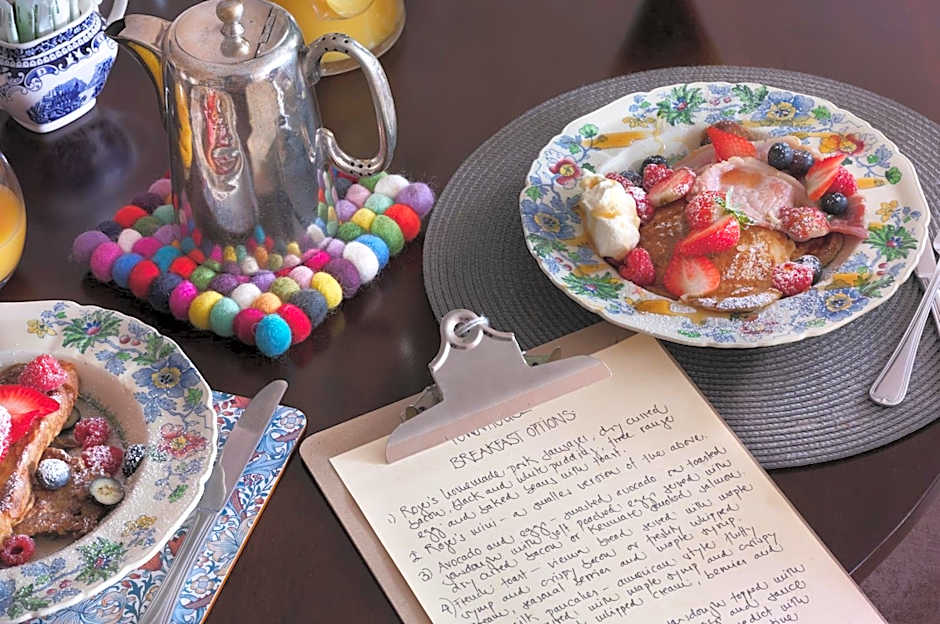 BREAKFAST OPTIONS
1) Rose's homemade pork sausages, dry cured
bacon, black and white pudding, free range
egg and baked beans with toast.
2 Rose's mini - a smaller version of the above.
3) Avocado and egg - smashed avocado on toasted
sourdough with soft poached eggs served with
dry cured bacon or Kenmare smoked salmon
4) French toast - vienna bread served with
crispy bacon or freshly whipped
seasonal berries and maple syrup.
pancakes - american style fluffy
with maple syrup and crispy
whipped cream, berries and
sourdough topped with
and sauce
with